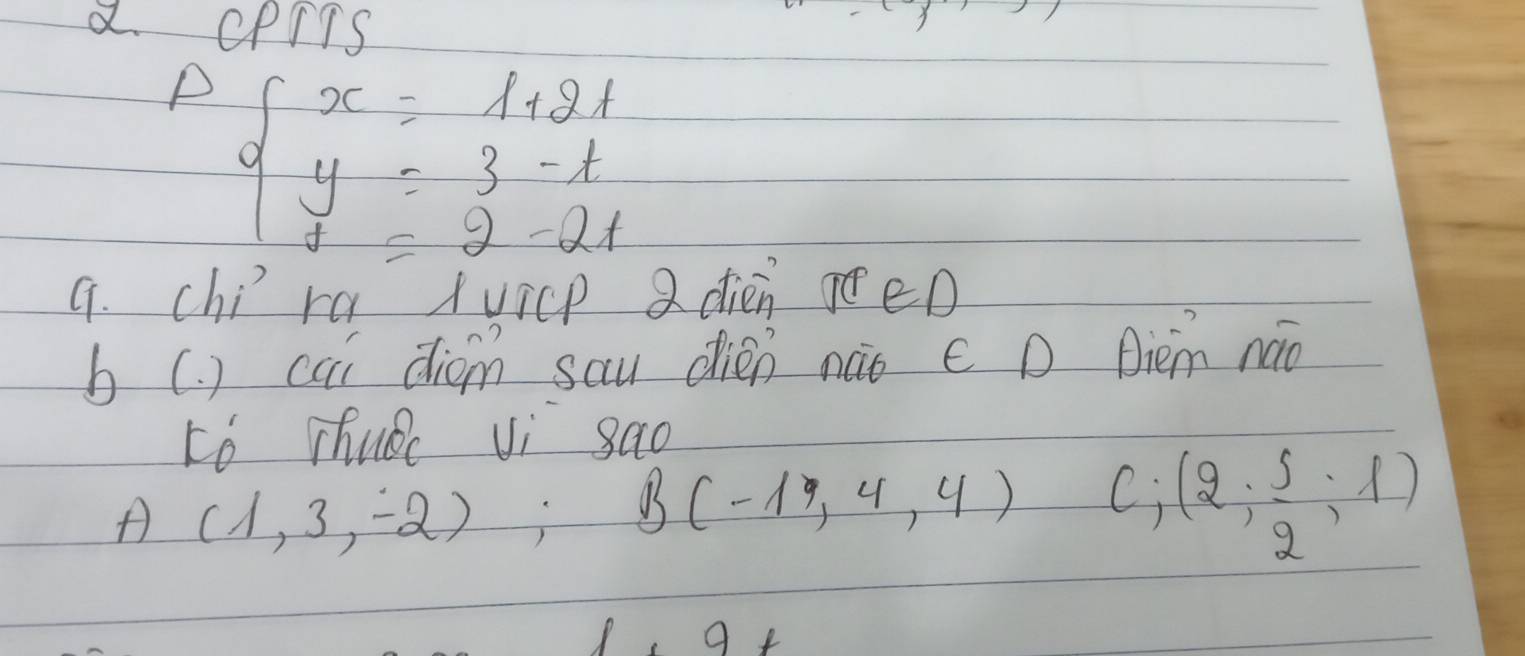 2. CPTTS
D { x = 1+2t
y = 3 -t
t = 2 -2t
a. chỉ ra 1 VTCP 2 điển ∈ D
b (.) các điểm sau điển nào ∈ D Điểm nào
kó Thuộc Vì sao
A (1, 3, -2) ; B(-1, 4, 4) C; (2; 5/2; 1)